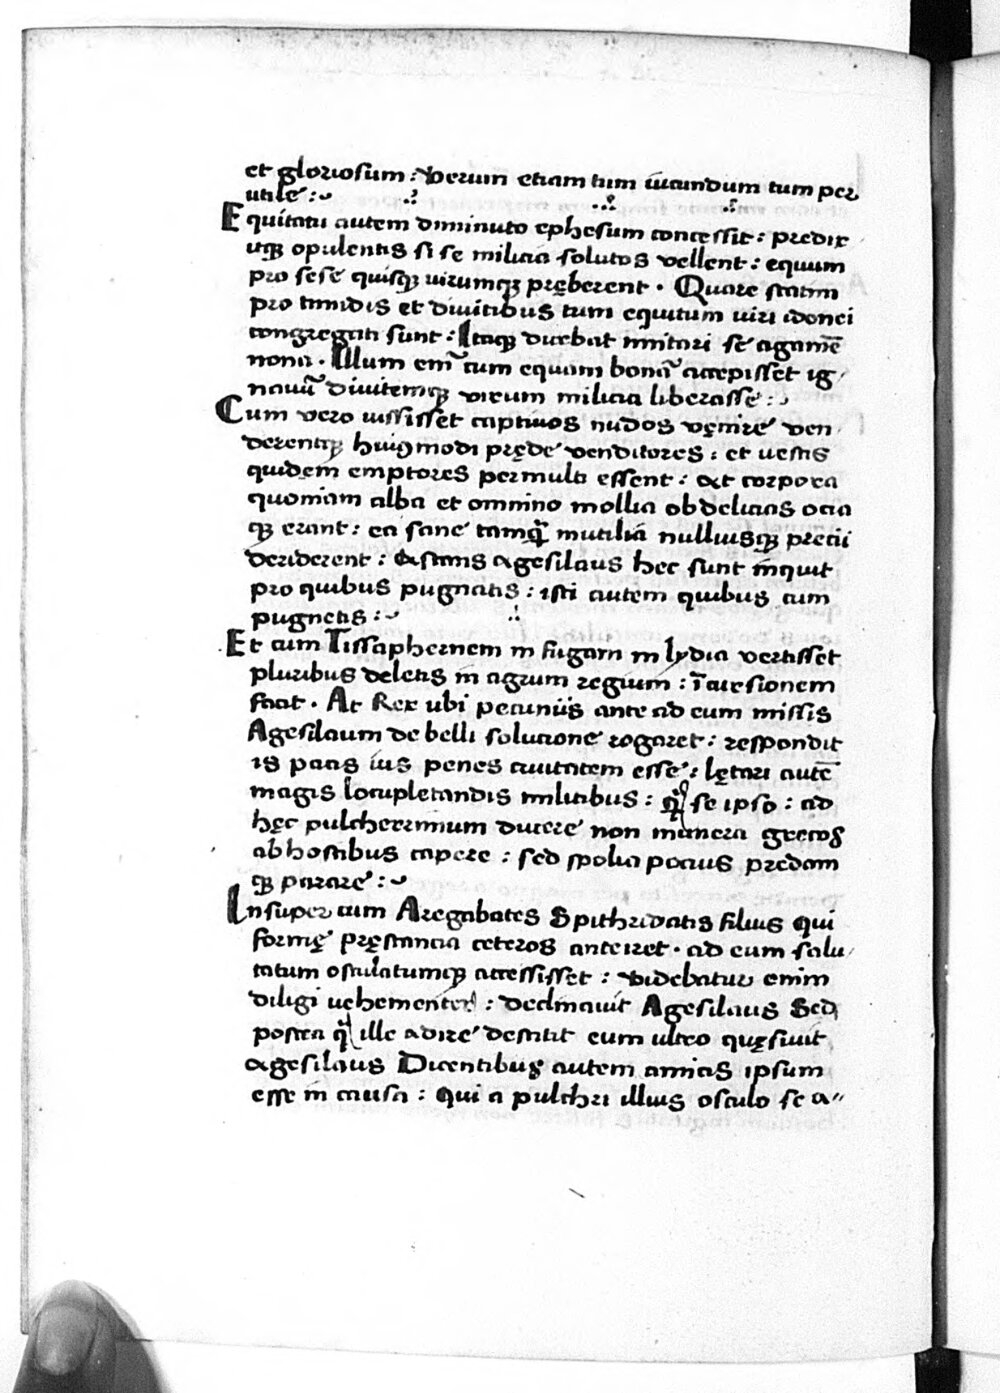 et gloriosum : verum etiam tum iucundum tum per
utile :
Equitatu autem diminuto ephesum concessit : predix
itqꝫ opulentis si se milicia solutos vellent : equum
pro sese quisqꝫ virumqꝫ pręberent . Quare statim
pro timidis et divitibus tum equitum viri idonei
congregati sunt : Itaqꝫ ducbat imitari se agamē
nona . Illum em̄ cum equam bonā accepisset ig
navū divitemqꝫ virum milicia liberasse :
Cum vero iussisset captivos nudos vęnire ven
derentqꝫ huiꝰmodi prędę venditores : et vestis
quidem emptores permulti essent : at corpora
quoniam alba et omnino mollia ob delicias ocia
qꝫ erant : ea sane tamqꝫ mutilia nulliusqꝫ precii
deriderent : Astans agesilaus hec sunt inquit
pro quibus pugnatis : isti autem quibus cum
pugnetis :
Et cum Tissaphernem in fugam in lydia vertisset
pluribus deletis in agrum regium : īcursionem
facit . At Rex ubi pecuniis ante ad eum missis
Agesilaum de belli solucione rogaret : respondit
is pacis ius penes civitatem esse : lętari autē
magis locupletandis militibus : qꝫ se ipso : ad
hęc pulcherrimum ducere non munera grecos
ab hostibus capere : sed spolia pocius predam
qꝫ parare :
Insuper cum Aregabates Spithridatis filius qui
formę pręstancia ceteros anteiret . ad eum salu
tatum osculatumqꝫ accessisset : videbatur enim
diligi vehementer : declinavit Agesilaus Sed
postea qꝫ ille adire destitit eum ultro quęsivit
agesilaus Dicentibus autem amicis ipsum
esse in causa : qui a pulchri illius osculo se a〃